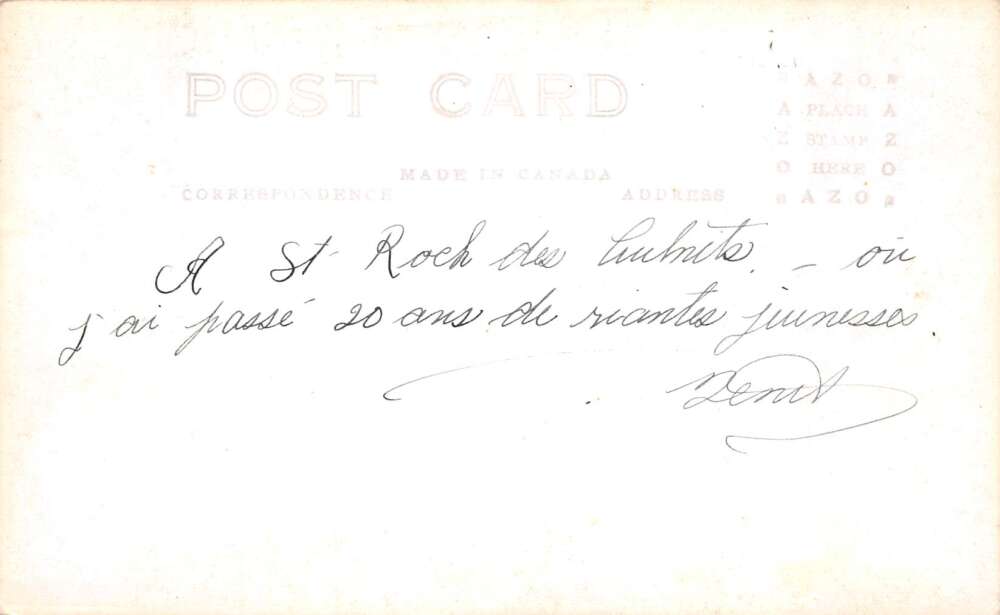 POST CARD
AZO
A PLACE A
Z STAMP Z
O HERE O
AZO
MADE IN CANADA
CORRESPONDENCE ADDRESS
A St Roch des Aulnets. – où
j'ai passé 20 ans de riantes jeunesses.